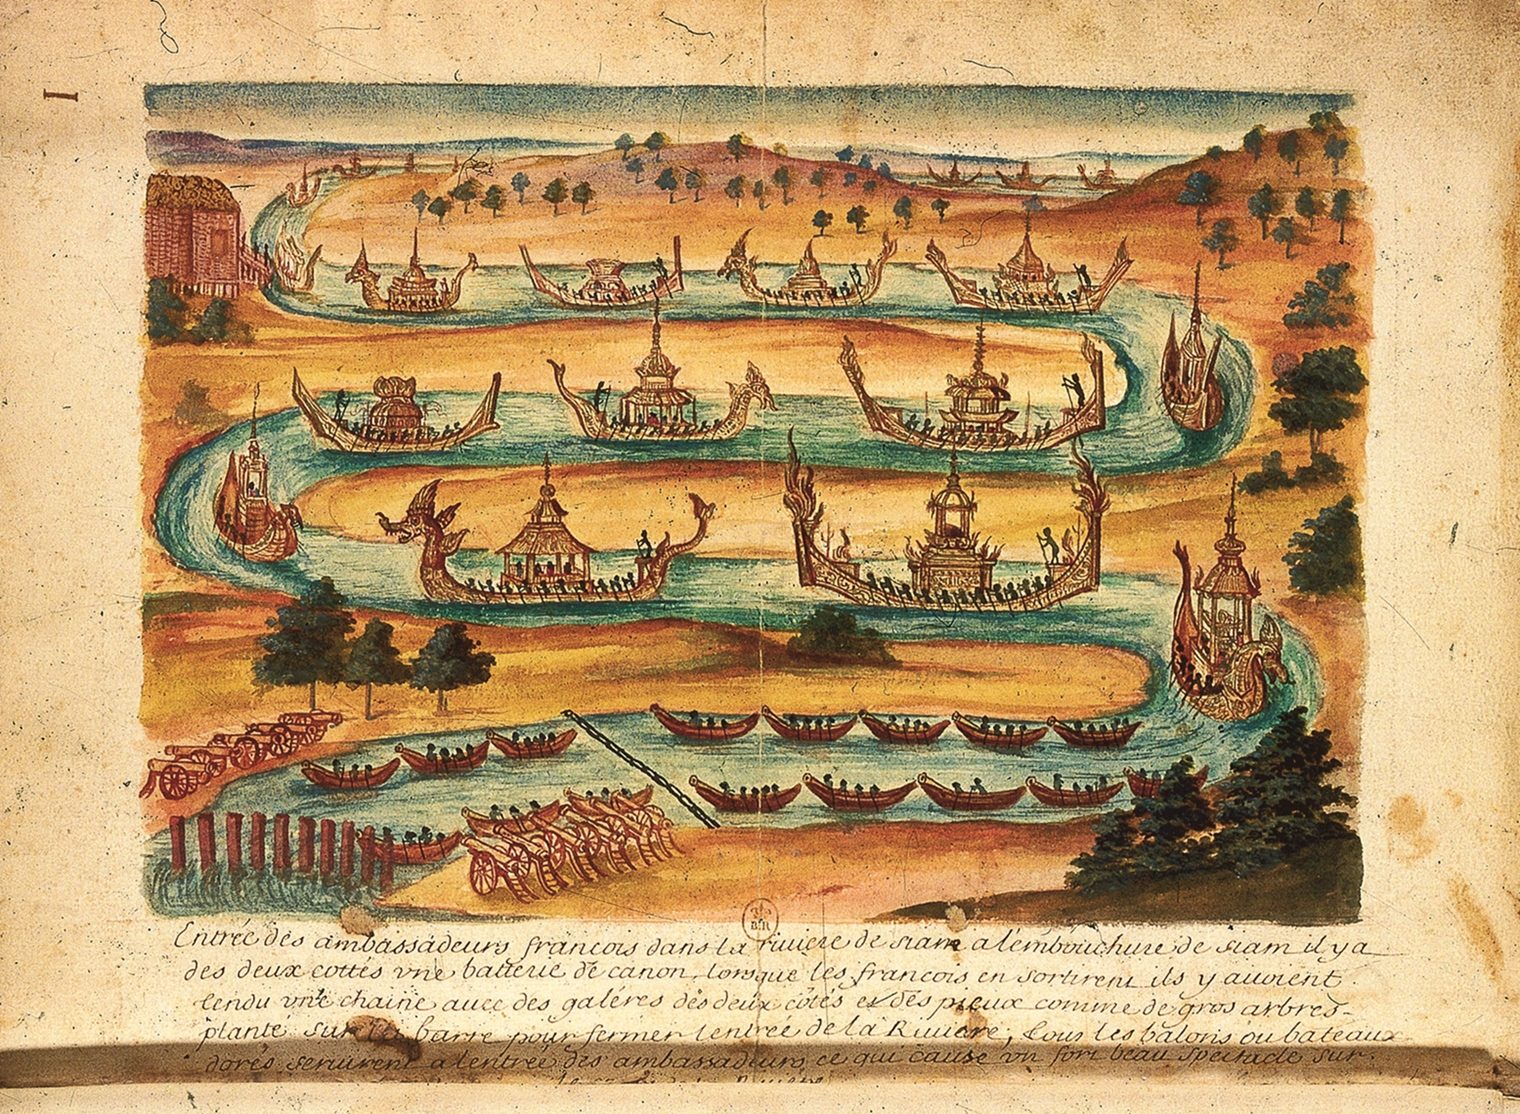 I
B.R
Entrée des ambassadeurs francois dans la riuiere de siam a lembouchure de siam il y a
des deux cottés vne batterie de canon, lorsque les francois en sortirent ils y auoient
tendu vne chaine auec des galéres des deux côtés et des pieux comme de gros arbres
planté sur la barre pour fermer lentrée de la Riuiere, tous les balons ou bateaux
dorés seruirent a lentrée des ambassadeurs ce qui cause vn fort beau spectacle sur